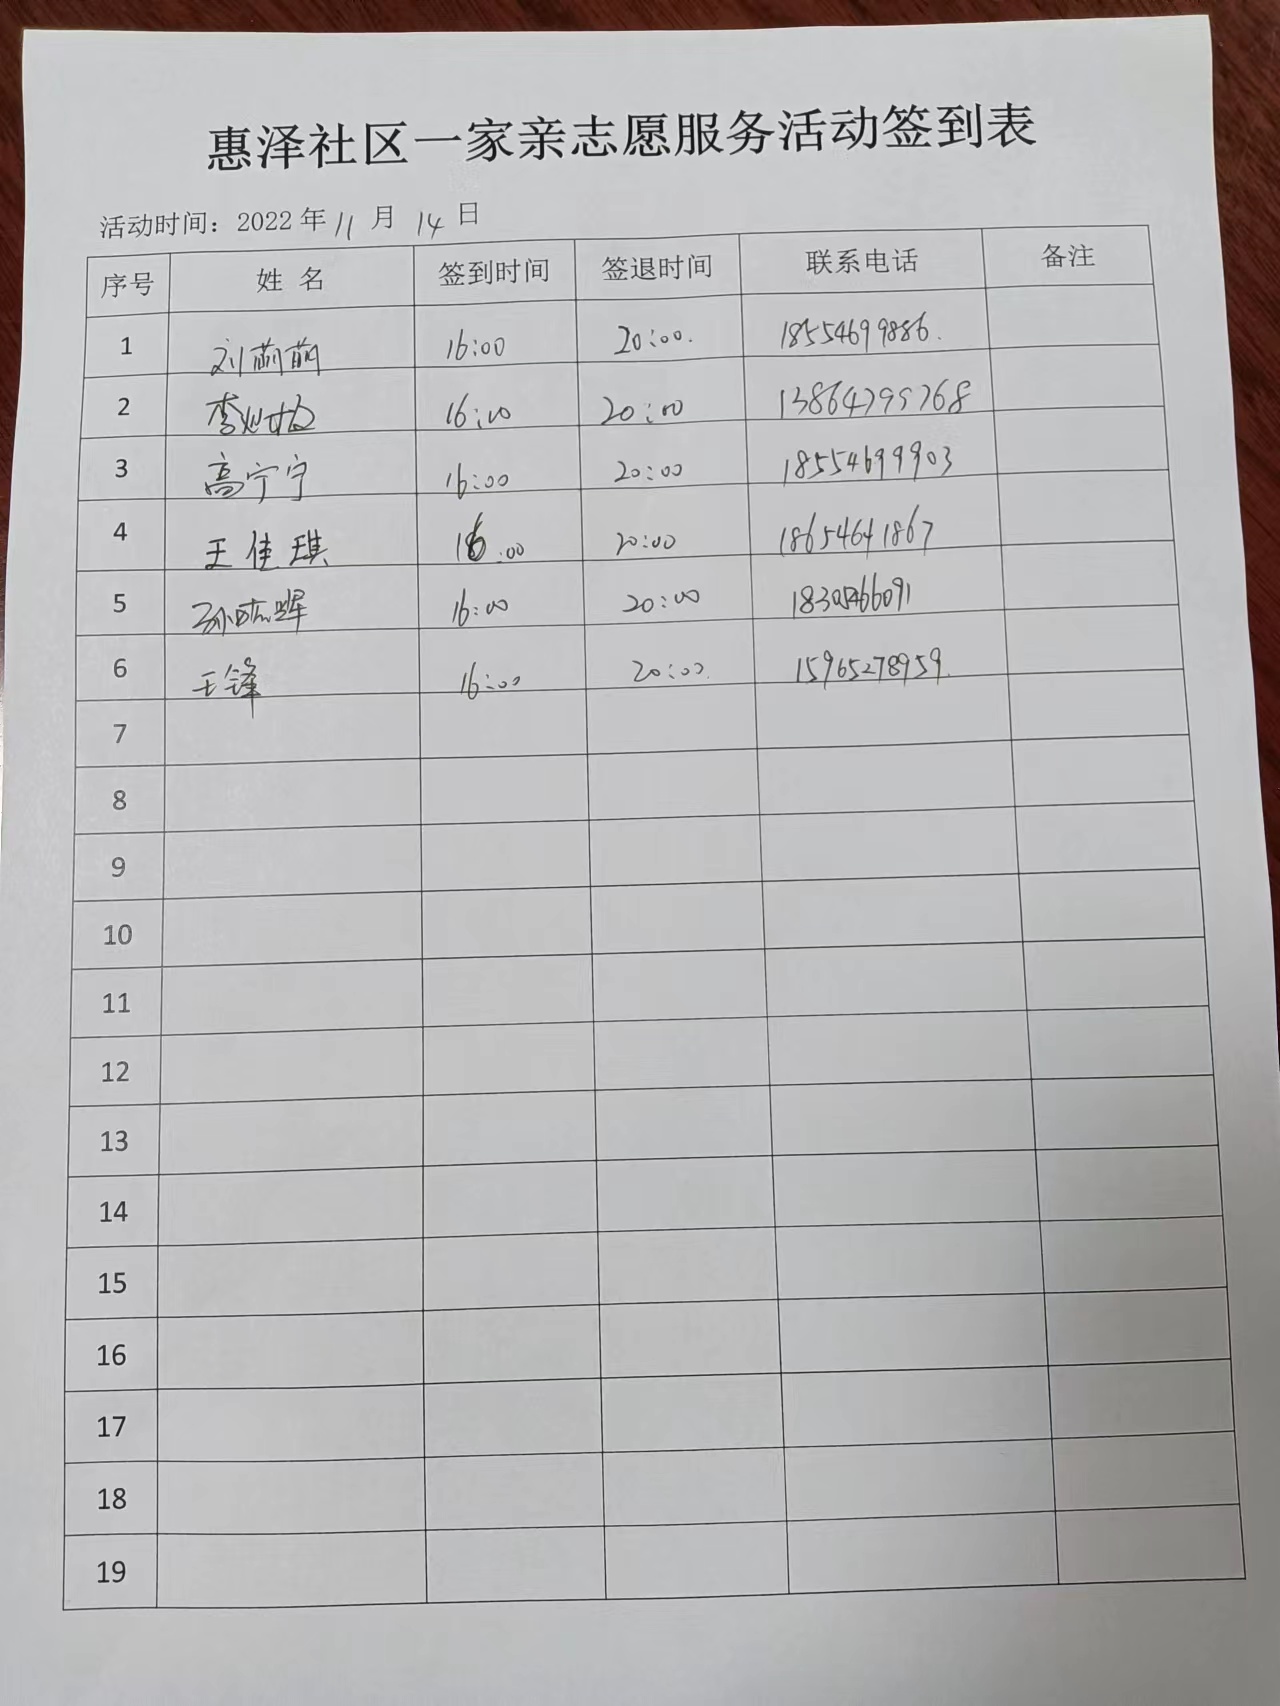 惠泽社区一家亲志愿服务活动签到表
活动时间：2022年11月14日
序号 姓 名 签到时间 签退时间 联系电话 备注
1 刘萌萌 16:00 20:00. 18554699886.
2 李 16:00 20:00 13864795768
3 高宁宁 16:00 20:00 18554699903
4 王佳琪 16:00 20:00 18654641867
5 孙 16:00 20:00 18305466091
6 王锋 16:00 20:00. 15965278959.
7
8
9
10
11
12
13
14
15
16
17
18
19